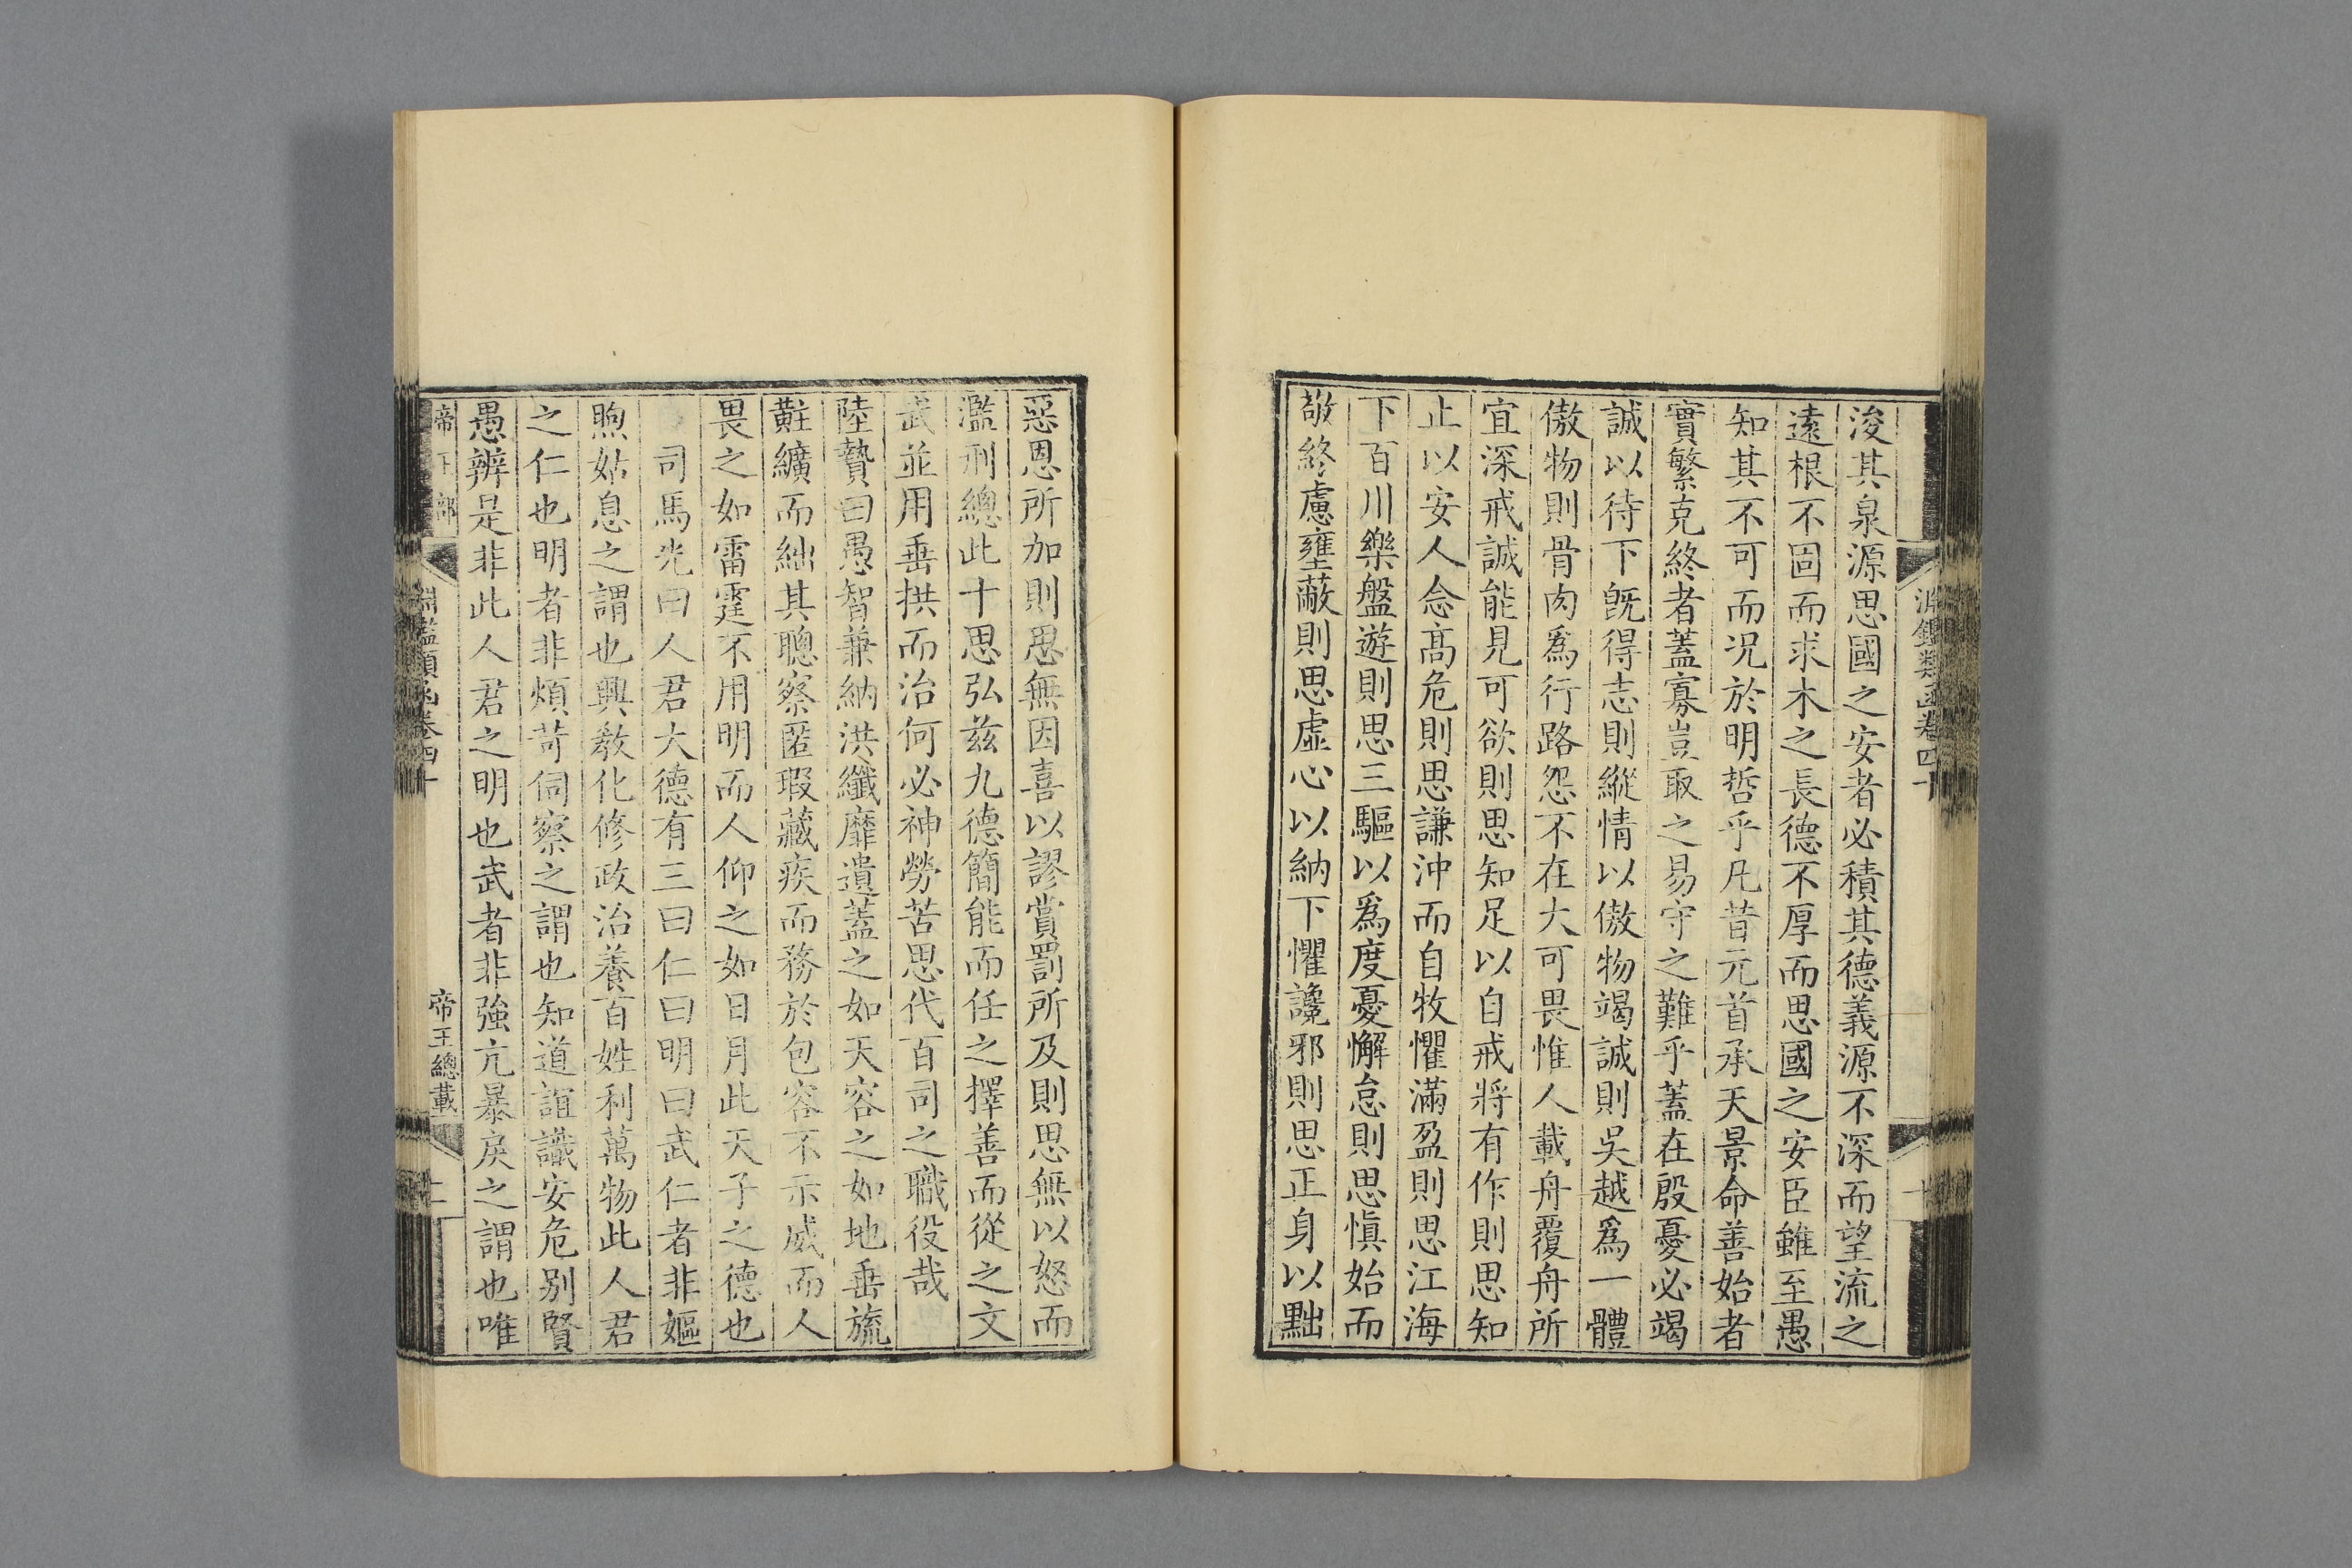 淵鑑類函卷四十
浚其泉源思國之安者必積其德義源不深而望流之
遠根不固而求木之長德不厚而思國之安臣雖至愚
知其不可而況於明哲乎凡昔元首承天景命善始者
實繁克終者蓋寡豈取之易守之難乎蓋在殷憂必竭
誠以待下旣得志則縱情以傲物竭誠則吳越爲一體
傲物則骨肉爲行路怨不在大可畏惟人載舟覆舟所
宜深戒誠能見可欲則思知足以自戒將有作則思知
止以安人念髙危則思謙沖而自牧懼滿盈則思江海
下百川樂盤遊則思三驅以爲度憂懈怠則思愼始而
敬終慮壅蔽則思虛心以納下懼讒邪則思正身以黜
惡恩所加則思無因喜以謬賞罰所及則思無以怒而
濫刑總此十思弘兹九德簡能而任之擇善而從之文
武並用垂拱而治何必神勞苦思代百司之職役哉
陸贄曰愚智兼納洪纖靡遺蓋之如天容之如地垂旒
黈纊而絀其聰察匿瑕藏疾而務於包容不示威而人
畏之如雷霆不用明而人仰之如日月此天子之德也
司馬光曰人君大德有三曰仁曰明曰武仁者非嫗
煦姑息之謂也興敎化修政治養百姓利萬物此人君
之仁也明者非煩苛伺察之謂也知道誼識安危别賢
愚辨是非此人君之明也武者非強亢暴戾之謂也唯
帝王部 淵鑑類函卷四十 帝王總載